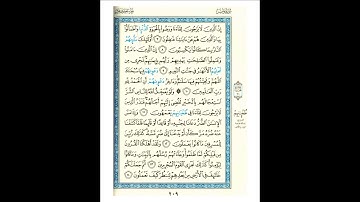 إِنَّ الَّذِينَ لَا يَرْجُونَ لِقَاءَنَا وَرَضُوا بِالْحَيَاةِ الدُّنْيَا وَاطْمَأَنُّوا
بِهَا وَالَّذِينَ هُمْ عَنْ آيَاتِنَا غَافِلُونَ ٧ أُولَٰئِكَ مَأْوَاهُمُ
النَّارُ بِمَا كَانُوا يَكْسِبُونَ ٨ إِنَّ الَّذِينَ آمَنُوا
وَعَمِلُوا الصَّالِحَاتِ يَهْدِيهِمْ رَبُّهُمْ بِإِيمَانِهِمْ تَجْرِي مِنْ
تَحْتِهِمُ الْأَنْهَارُ فِي جَنَّاتِ النَّعِيمِ ٩ دَعْوَاهُمْ فِيهَا
سُبْحَانَكَ اللَّهُمَّ وَتَحِيَّتُهُمْ فِيهَا سَلَامٌ وَآخِرُ دَعْوَاهُمْ أَنِ الْحَمْدُ لِلَّهِ
رَبِّ الْعَالَمِينَ ١٠ وَلَوْ يُعَجِّلُ اللَّهُ لِلنَّاسِ الشَّرَّ
اسْتِعْجَالَهُمْ بِالْخَيْرِ لَقُضِيَ إِلَيْهِمْ أَجَلُهُمْ فَنَذَرُ الَّذِينَ
لَا يَرْجُونَ لِقَاءَنَا فِي طُغْيَانِهِمْ يَعْمَهُونَ ١١ وَإِذَا مَسَّ
الْإِنْسَانَ الضُّرُّ دَعَانَا لِجَنْبِهِ أَوْ قَاعِدًا أَوْ قَائِمًا فَلَمَّا كَشَفْنَا
عَنْهُ ضُرَّهُ مَرَّ كَأَنْ لَمْ يَدْعُنَا إِلَىٰ ضُرٍّ مَسَّهُ كَذَٰلِكَ زُيِّنَ
لِلْمُسْرِفِينَ مَا كَانُوا يَعْمَلُونَ ١٢ وَلَقَدْ أَهْلَكْنَا الْقُرُونَ
مِنْ قَبْلِكُمْ لَمَّا ظَلَمُوا وَجَاءَتْهُمْ رُسُلُهُمْ بِالْبَيِّنَاتِ وَمَا كَانُوا
لِيُؤْمِنُوا كَذَٰلِكَ نَجْزِي الْقَوْمَ الْمُجْرِمِينَ ١٣ ثُمَّ جَعَلْنَاكُمْ
خَلَائِفَ فِي الْأَرْضِ مِنْ بَعْدِهِمْ لِنَنْظُرَ كَيْفَ تَعْمَلُونَ ١٤
٢٠٩